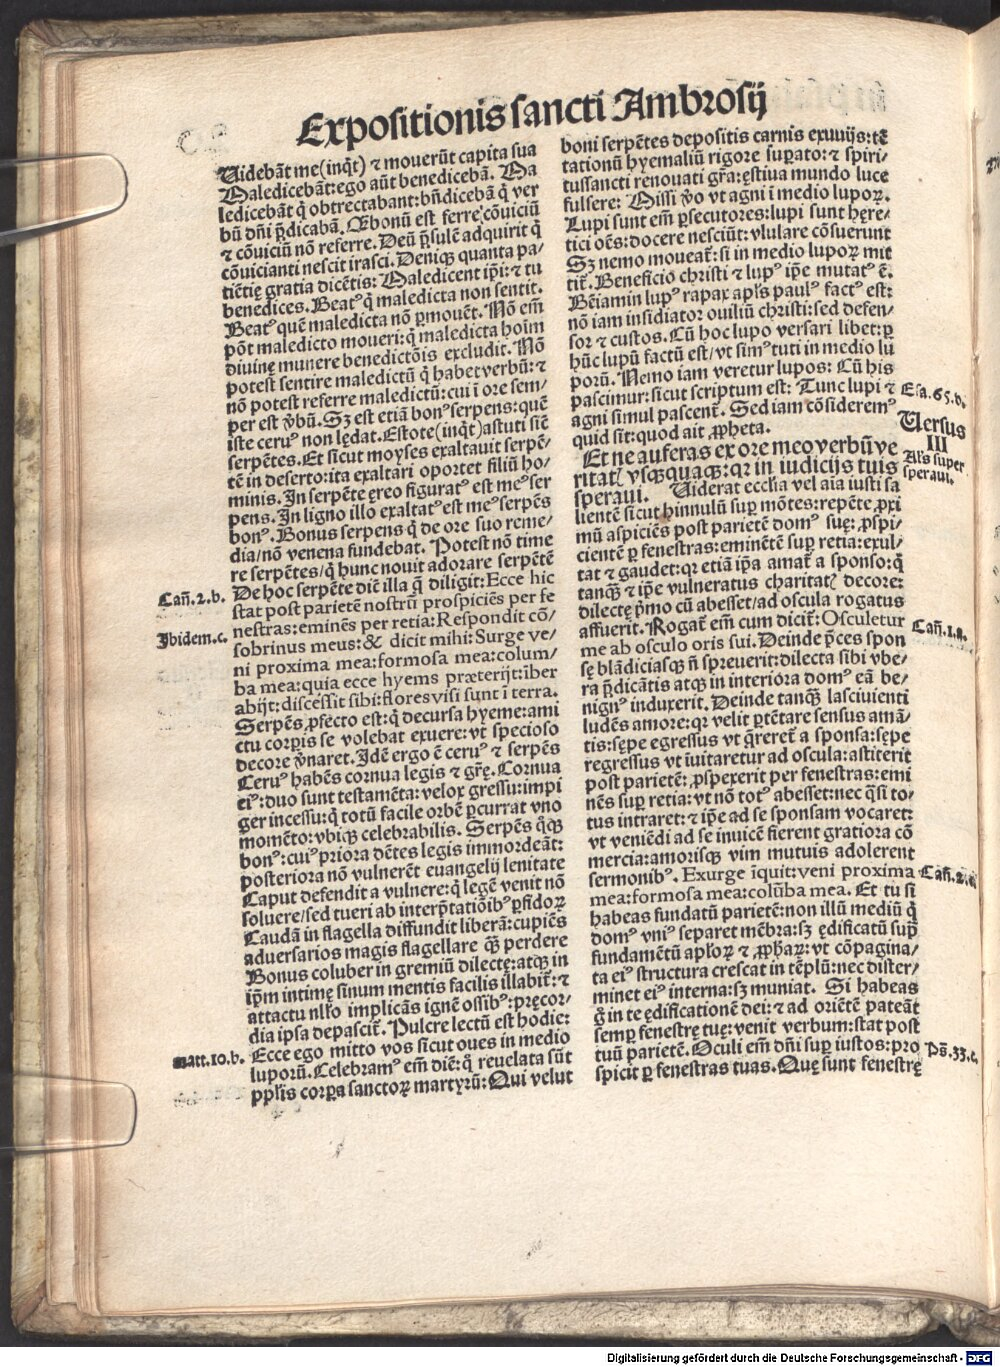 Expositionis sancti Ambrosij
Uidebāt me(inq̄t) ⁊ mouerūt capita sua
Maledicebāt:ego aūt benedicebā. Ma
ledicebāt q̇ obtrectabant:bn̄dicebā q̇ ver
bū dn̄i p̄dicabā. O bonū est ferre cōuiciū
⁊ cōuiciū nō referre. Deū p̄sulē adquirit q̇
cōuicianti nescit irasci. Deniqꝫ quanta pa-
tiētię gratia dicētis: Maledicent ip̄i:⁊ tu
benedices. Beatꝰ q̇ maledicta non sentit.
Beatꝰ quē maledicta nō ꝑmouēt. Nō em̄
pōt maledicto moueri:q̇ maledicta hoim̄
diuinę munere benedictōis excludit. Nō
potest sentire maledictū q̇ habet verbū: ⁊
nō potest referre maledictū: cui i ore sem/
per est v̄bū. Sꝫ est etiā bonꝰ serpens: quē
iste ceruꝰ non lędat. Estote(inq̄t) astuti siē
serpētes. Et sicut moyses exaltauit serpē/
tē in deserto:ita exaltari oportet filiū ho/
minis. In serpēte ęreo figuratꝰ est meꝰ ser
pens. In ligno illo exaltatꝰ est meꝰ serpēs
bonꝰ. Bonus serpens q̇ de ore suo reme/
dia/nō venena fundebat. Potest nō time
re serpētes/q̇ hunc nouit adorare serpētē
De hoc serpēte diē illa q̄ diligit: Ecce hic
stat post parietē nostrū prospiciēs per fe
nestras: eminēs per retia: Respondit cō/
sobrinus meus: & dicit mihi: Surge ve/
ni proxima mea: formosa mea: colum/
ba mea: quia ecce hyems præterijt: īber
abijt: discessit sibi: flores visi sunt ī terra.
Serpēs ꝓfecto est: q̇ decursa hyeme: ami
ctu corꝑis se volebat exuere: vt specioso
decore v̄naret. Idē ergo ē ceruꝰ ⁊ serpēs
Ceruꝰ habēs cornua legis ⁊ gr̄ę. Cornua
eiꝰ: duo sunt testamēta: velox gressu: impi
ger incessu: q̇ totū facile orbē ꝑcurrat vno
momēto: vbiqꝫ celebrabilis. Serpēs q̊qꝫ
bonꝰ: cuiꝰ priora dētes legis immordeāt:
posteriora nō vulnerēt euangelij lenitate
Caput defendit a vulnere: q̇ legē venit nō
soluere/sed tueri ab interp̄tatiōibꝰ ꝑfidoꝝ
Caudā in flagella diffundit liberā: cupiēs
aduersarios magis flagellare q̄ꝫ perdere
Bonus coluber in gremiū dilectę: atqꝫ in
ip̄m intimę sinum mentis facilis illabit̄: ⁊
attactu nl̄ło implicās ignē ossibꝰ: pręcor/
dia ipsa depascit̄. Pulcre lectū est hodie:
Ecce ego mitto vos sicut oues in medio
luporū. Celebramꝰ em̄ diē: q̇ reuelata sūt
pp̄lis corꝑa sanctoꝝ martyrū: Qui velut
Cañ.2.b.
Ibidem.c.
matt.10.b.
boni serpētes depositis carnis exuuijs: tē
tationū hyemaliū rigore suꝑato: ⁊ spiri-
tussancti renouati gr̄a: ęstiua mundo luce
fulsere: Missi v̊o vt agni ī medio lupoꝝ.
Lupi sunt em̄ ꝑsecutores: lupi sunt hęre/
tici oēs: docere nesciūt: vlulare cōsuerunt
Sꝫ nemo moueat̄: si in medio lupoꝝ mit
tit̄. Beneficio christi ⁊ lupꝰ ip̄e mutatꝰ ē.
Bēiamin lupꝰ rapax apl̄s paulꝰ factꝰ est:
nō iam insidiator ouiliū christi: sed defen/
sor ⁊ custos. Cū hoc lupo versari libet: ꝑ
hūc lupū factū est/vt simꝰ tuti in medio lu
porū. Nemo iam veretur lupos: Cū his
pascimur: sicut scriptum est: Tunc lupi ⁊
agni simul pascent̄. Sed iam cōsideremꝰ
quid sit: quod ait ꝓpheta.
Et ne auferas ex ore meo verbū ve
ritatꝭ vsqꝫquaqꝫ: qꝛ in iudicijs tuis
speraui. Uiderat eccl̄ia vel aīa iusti sa
lientē sicut hinnulū suꝑ mōtes: repēte ꝓxi
mū aspiciēs post parietē domꝰ suę: ꝓspi/
cientē ꝑ fenestras: eminētē suꝑ retia: exul/
tat ⁊ gaudet: qꝛ etiā ip̄a amat̄ a sponso: q̇
tanqꝫ ⁊ ip̄e vulneratus charitatꝭ decore:
dilectę p̄mo cū abesset/ad oscula rogatus
affuerit. Rogat̄ em̄ cum dicit̄: Osculetur
me ab osculo oris sui. Deinde p̄ces spon
sę blādiciasqꝫ n̄ spreuerit: dilecta sibi vbe/
ra p̄dicātis atqꝫ in interiora domꝰ eā be/
nignꝰ induxerit. Deinde tanqꝫ lasciuienti
ludēs amore: qꝛ velit ꝑtētare sensus amā/
tis: sępe egressus vt q̄reret̄ a sponsa: sępe
regressus vt īuitaretur ad oscula: astiterit
post parietē: ꝓspexerit per fenestras: emi
nēs suꝑ retia: vt nō totꝰ abesset: nec q̄si to/
tus intraret: ⁊ ip̄e ad se sponsam vocaret:
vt veniēdi ad se inuicē fierent gratiora cō
mercia: amorisqꝫ vim mutuis adolerent
sermonibꝰ. Exurge īquit: veni proxima
mea: formosa mea: colūba mea. Et tu si
habeas fundatū parietē: non illū mediū q̇
domꝰ vniꝰ separet mēbra: sꝫ ędificatū suꝑ
fundamētū apl̄oꝝ ⁊ ꝓphaꝝ: vt cōpagina/
ta eiꝰ structura crescat in tēplū: nec dister/
minet eiꝰ interna: sꝫ muniat. Si habeas
q̇ in te ędificationē dei: ⁊ ad oriētē pateāt
semꝑ fenestrę tuę: venit verbum: stat post
tuū parietē. Oculi em̄ dn̄i suꝑ iustos: pro
spicit ꝑ fenestras tuas. Quę sunt fenestrę
Esa.65.d.
Uersus
III
Al's super
speraui.
Cañ.1.a.
Cañ.2.
Ps̄.33.c.
Digitalisierung gefördert durch die Deutsche Forschungsgemeinschaft - DFG